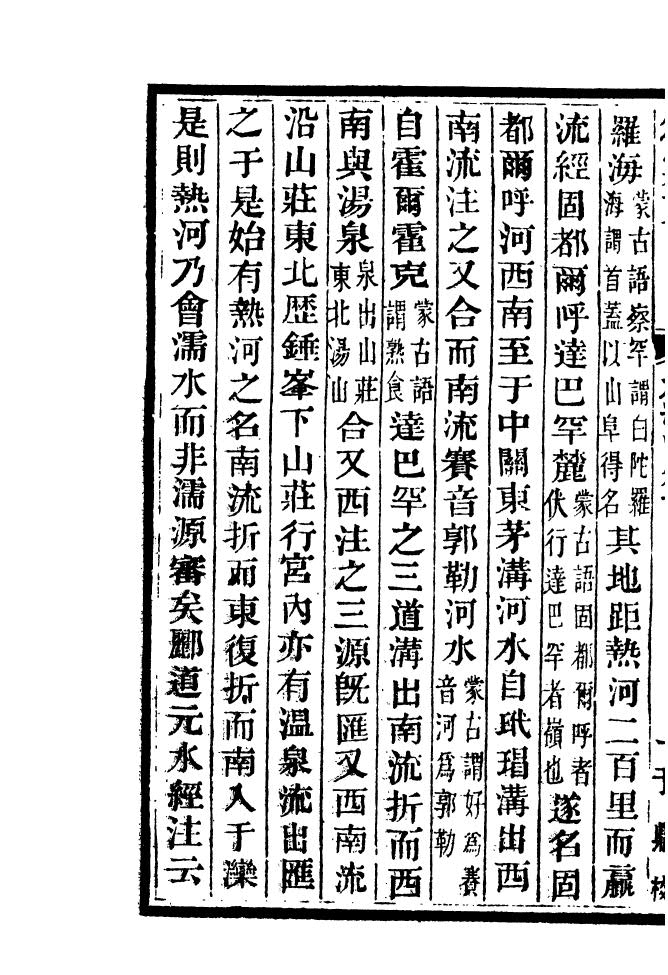 羅海蒙古語察罕謂白陀羅海謂首蓋以山阜得名其地距熱河二百里而贏
流經固都爾呼達巴罕麓蒙古語固都爾呼者伏行達巴罕者嶺也遂名固
都爾呼河西南至于中關東茅溝河水自玳瑁溝出西
南流注之又合而南流賽音郭勒河水蒙古謂好爲賽音河爲郭勒
自霍爾霍克蒙古語謂熟食達巴罕之三道溝出南流折而西
南與湯泉泉出山莊東北湯山合又西注之三源旣匯又西南流
沿山莊東北歷錘峯下山莊行宮內亦有溫泉流出匯
之于是始有熱河之名南流折而東復折而南入于灤
是則熱河乃會濡水而非濡源審矣酈道元水經注云